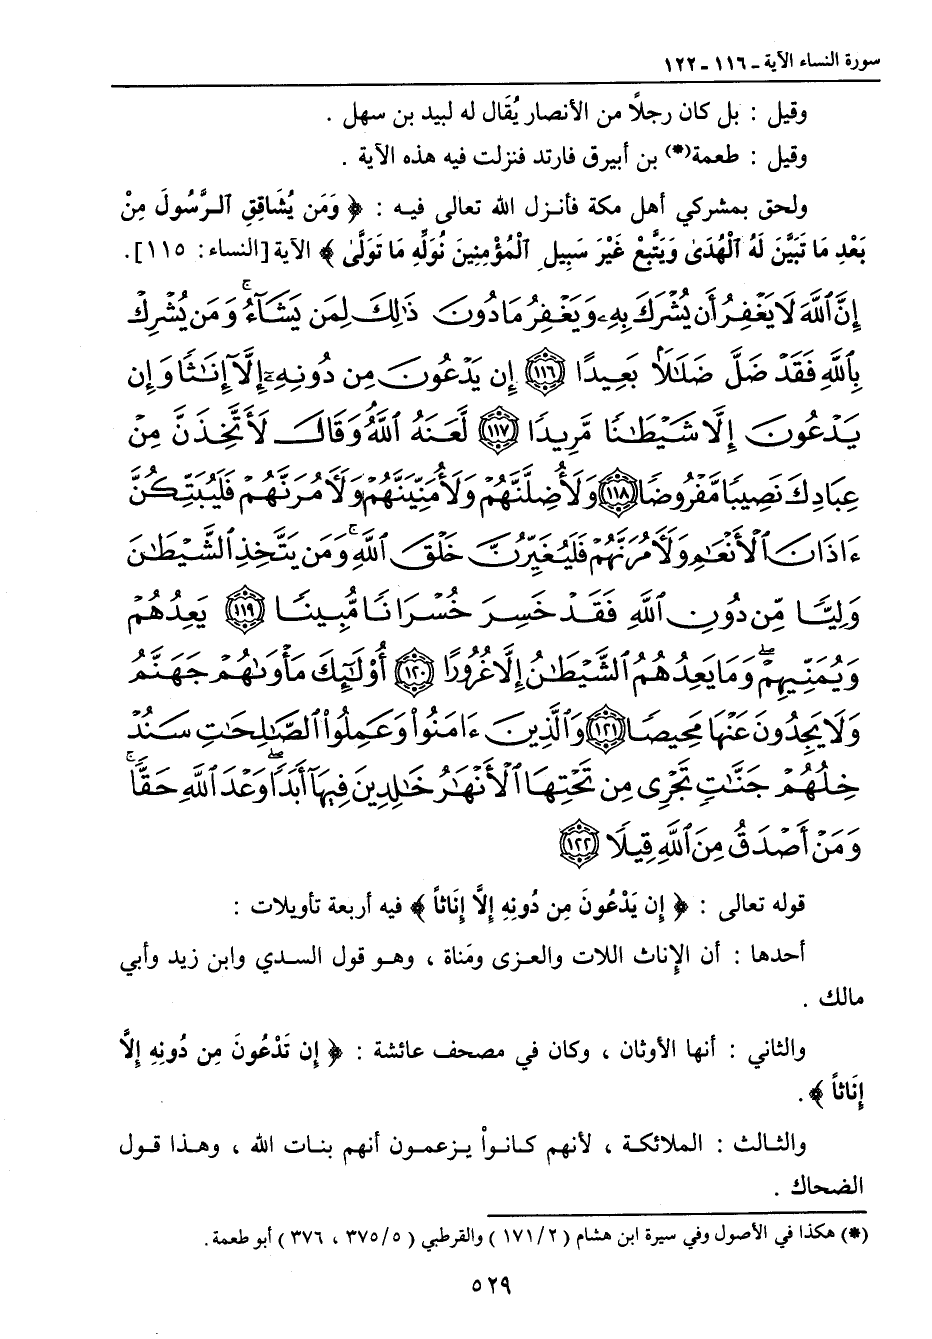 سورة النساء الآية ـ ١١٦ ـ ١٢٢
وقيل : بل كان رجلًا من الأنصار يُقَال له لبيد بن سهل .
وقيل : طعمة(*) بن أبيرق فارتد فنزلت فيه هذه الآية .
ولحق بمشركي أهل مكة فأنزل الله تعالى فيه : ﴿ وَمَن يُشَاقِقِ الرَّسُولَ مِنْ
بَعْدِ مَا تَبَيَّنَ لَهُ الْهُدَىٰ وَيَتَّبِعْ غَيْرَ سَبِيلِ الْمُؤْمِنِينَ نُوَلِّهِ مَا تَوَلَّىٰ ﴾ الآية [النساء: ١١٥].
إِنَّ ٱللَّهَ لَا يَغْفِرُ أَن يُشْرَكَ بِهِۦ وَيَغْفِرُ مَا دُونَ ذَٰلِكَ لِمَن يَشَآءُ ۚ وَمَن يُشْرِكْ
بِٱللَّهِ فَقَدْ ضَلَّ ضَلَٰلًۢا بَعِيدًا ﴿١١٦﴾ إِن يَدْعُونَ مِن دُونِهِۦٓ إِلَّآ إِنَٰثًا وَإِن
يَدْعُونَ إِلَّا شَيْطَٰنًا مَّرِيدًا ﴿١١٧﴾ لَّعَنَهُ ٱللَّهُ وَقَالَ لَأَتَّخِذَنَّ مِنْ
عِبَادِكَ نَصِيبًا مَّفْرُوضًا ﴿١١٨﴾ وَلَأُضِلَّنَّهُمْ وَلَأُمَنِّيَنَّهُمْ وَلَأَمُرَنَّهُمْ فَلَيُبَتِّكُنَّ
ءَاذَانَ ٱلْأَنْعَٰمِ وَلَأَمُرَنَّهُمْ فَلَيُغَيِّرُنَّ خَلْقَ ٱللَّهِ ۚ وَمَن يَتَّخِذِ ٱلشَّيْطَٰنَ
وَلِيًّا مِّن دُونِ ٱللَّهِ فَقَدْ خَسِرَ خُسْرَانًا مُّبِينًا ﴿١١٩﴾ يَعِدُهُمْ
وَيُمَنِّيهِمْ ۖ وَمَا يَعِدُهُمُ ٱلشَّيْطَٰنُ إِلَّا غُرُورًا ﴿١٢٠﴾ أُو۟لَٰٓئِكَ مَأْوَىٰهُمْ جَهَنَّمُ
وَلَا يَجِدُونَ عَنْهَا مَحِيصًا ﴿١٢١﴾ وَٱلَّذِينَ ءَامَنُوا۟ وَعَمِلُوا۟ ٱلصَّٰلِحَٰتِ سَنُدْ
خِلُهُمْ جَنَّٰتٍ تَجْرِى مِن تَحْتِهَا ٱلْأَنْهَٰرُ خَٰلِدِينَ فِيهَآ أَبَدًا ۖ وَعْدَ ٱللَّهِ حَقًّا ۚ
وَمَنْ أَصْدَقُ مِنَ ٱللَّهِ قِيلًا ﴿١٢٢﴾
قوله تعالى : ﴿ إِن يَدْعُونَ مِن دُونِهِ إِلَّا إِنَاثاً ﴾ فيه أربعة تأويلات :
أحدها : أن الإناث اللات والعزى ومَناة ، وهو قول السدي وابن زيد وأبي
مالك .
والثاني : أنها الأوثان ، وكان في مصحف عائشة : ﴿ إِن تَدْعُونَ مِن دُونِهِ إِلَّا
إِنَاثاً ﴾ .
والثالث : الملائكة ، لأنهم كانواْ يزعمون أنهم بنات الله ، وهذا قول
الضحاك .
(*) هكذا في الأصول وفي سيرة ابن هشام ( ١٧١/٢ ) والقرطبي ( ٣٧٥/٥ ، ٣٧٦ ) أبو طعمة .
٥٢٩